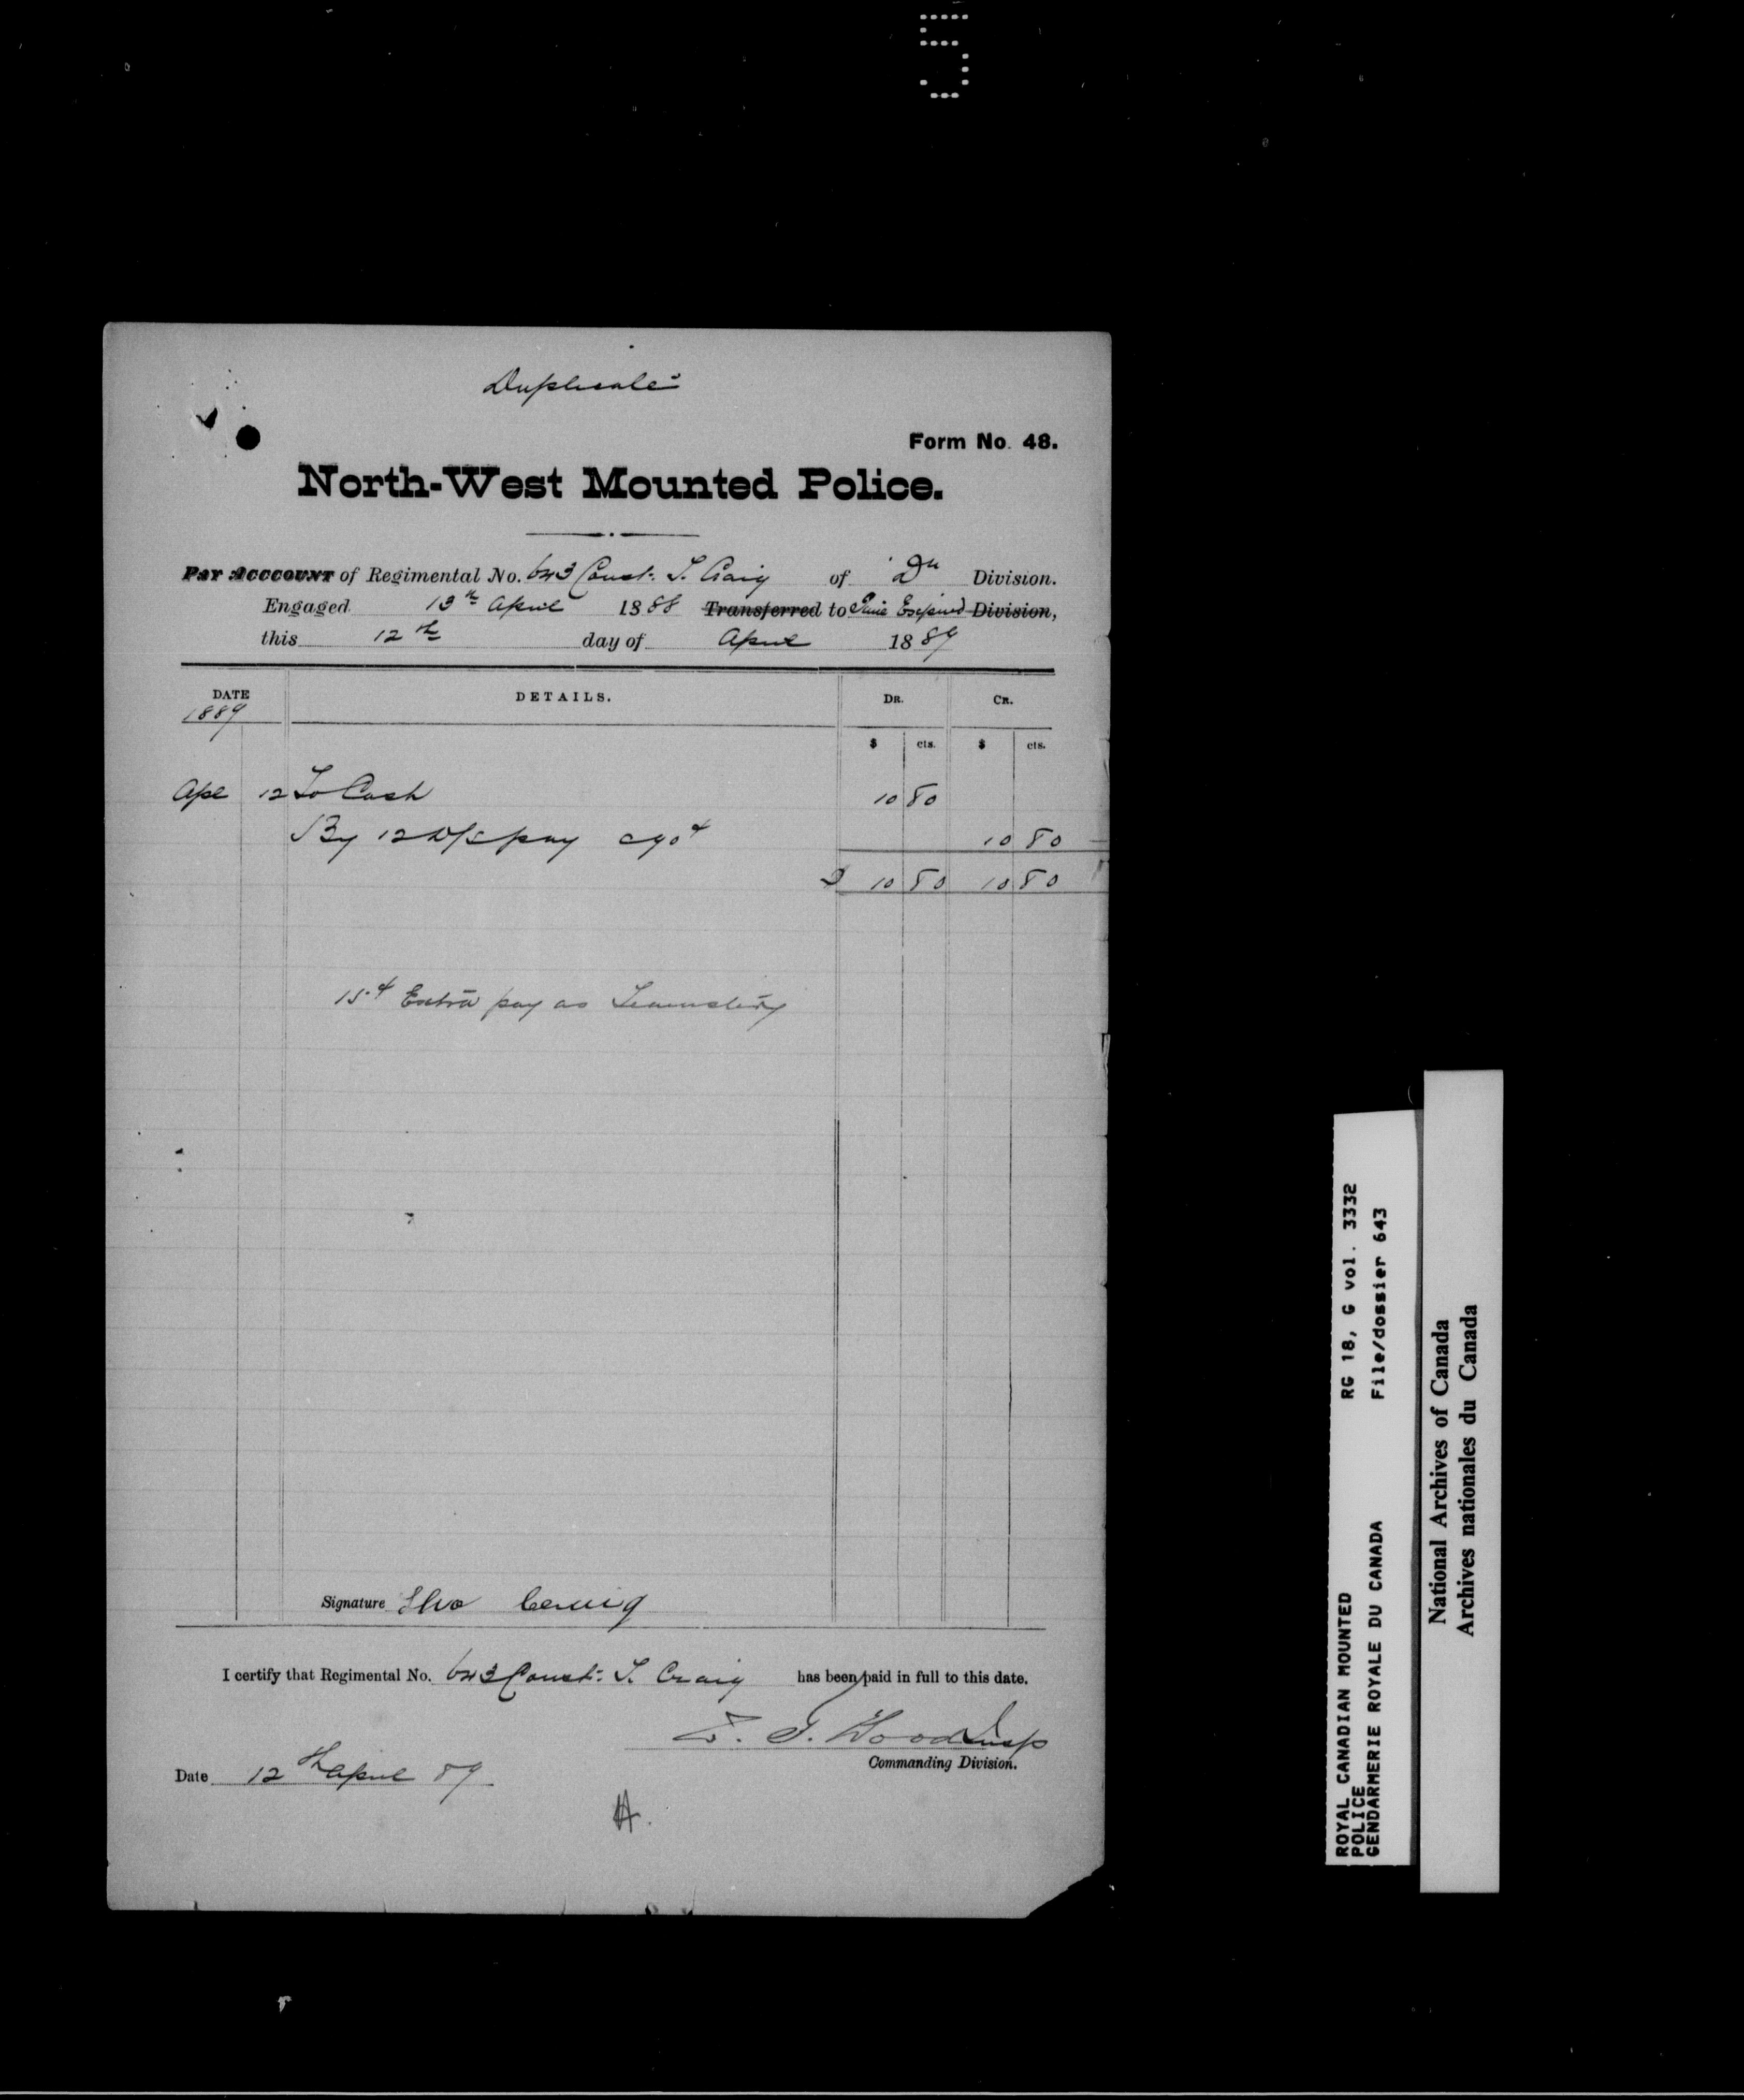 5
Duplicate
Form No. 48.
North-West Mounted Police.
Pay Acccount of Regimental No. 643 Const. T. Craig of "D" Division.
Engaged 13th April 1888 Transferred to Time Expired Division,
this 12th day of April 1889
DATE DETAILS. DR. CR.
1889
$ cts. $ cts.
Apl 12 To Cash 10 80
By 12 D/s pay @ 90¢ 10 80
$ 10 80 10 80
15¢ Extra pay as Teamster
Signature Thos Craig
I certify that Regimental No. 643 Const. T. Craig has been paid in full to this date.
Z. T. Wood Insp
Commanding Division.
Date 12th April 89
A.
ROYAL CANADIAN MOUNTED RG 18, G vol. 3332
POLICE
GENDARMERIE ROYALE DU CANADA File/dossier 643
National Archives of Canada
Archives nationales du Canada